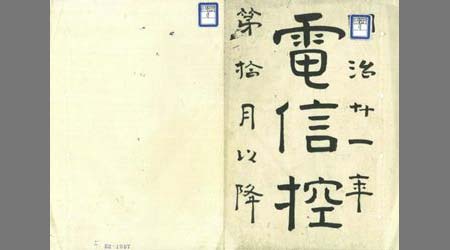 明治廿一年
電信控
第拾月以降